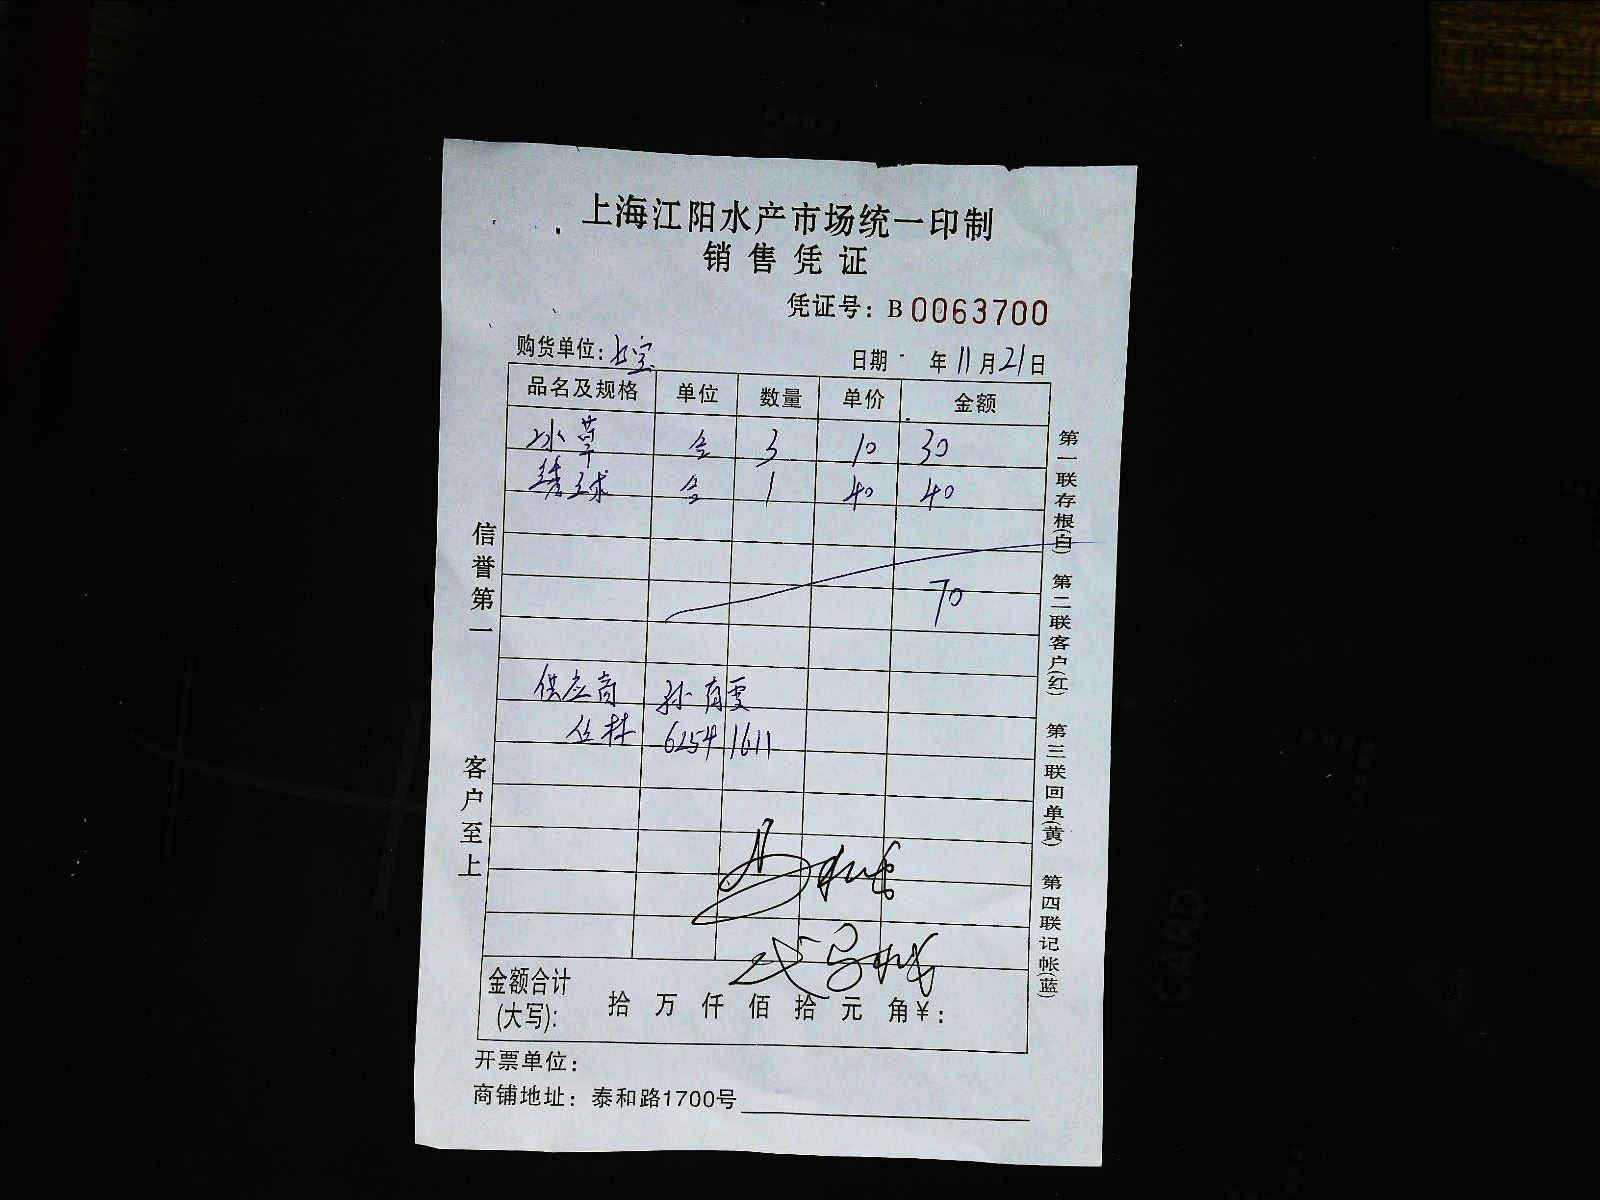 上海江阳水产市场统一印制
销售凭证
凭证号：B 0063700
购货单位：
日期 年 11 月 21 日
品名及规格 单位 数量 单价 金额
水草 3 10 30
绣球 1 40 40
70
供应商 孙有雯
丛林 62541611
金额合计
(大写)： 拾 万 仟 佰 拾 元 角 ¥：
开票单位：
商铺地址：泰和路1700号
信誉第一
客户至上
第一联存根(白) 第二联客户(红) 第三联回单(黄) 第四联记帐(蓝)